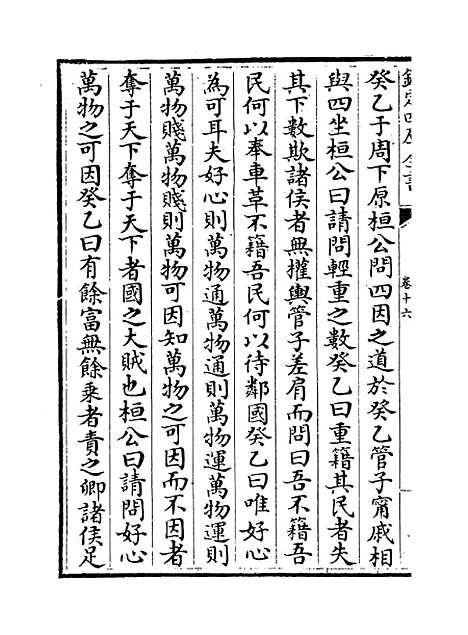 欽定四庫全書
卷十六
癸乙于周下原桓公問四因之道於癸乙管子甯戚相
與四坐桓公曰請問輕重之數癸乙曰重籍其民者失
其下數欺諸侯者無權輿管子差肩而問曰吾不籍吾
民何以奉車革不籍吾民何以待鄰國癸乙曰唯好心
為可耳夫好心則萬物通萬物通則萬物運萬物運則
萬物賤萬物賤則萬物可因知萬物之可因而不因者
奪于天下奪于天下者國之大賊也桓公曰請問好心
萬物之可因癸乙曰有餘富無餘乘者責之卿諸侯足